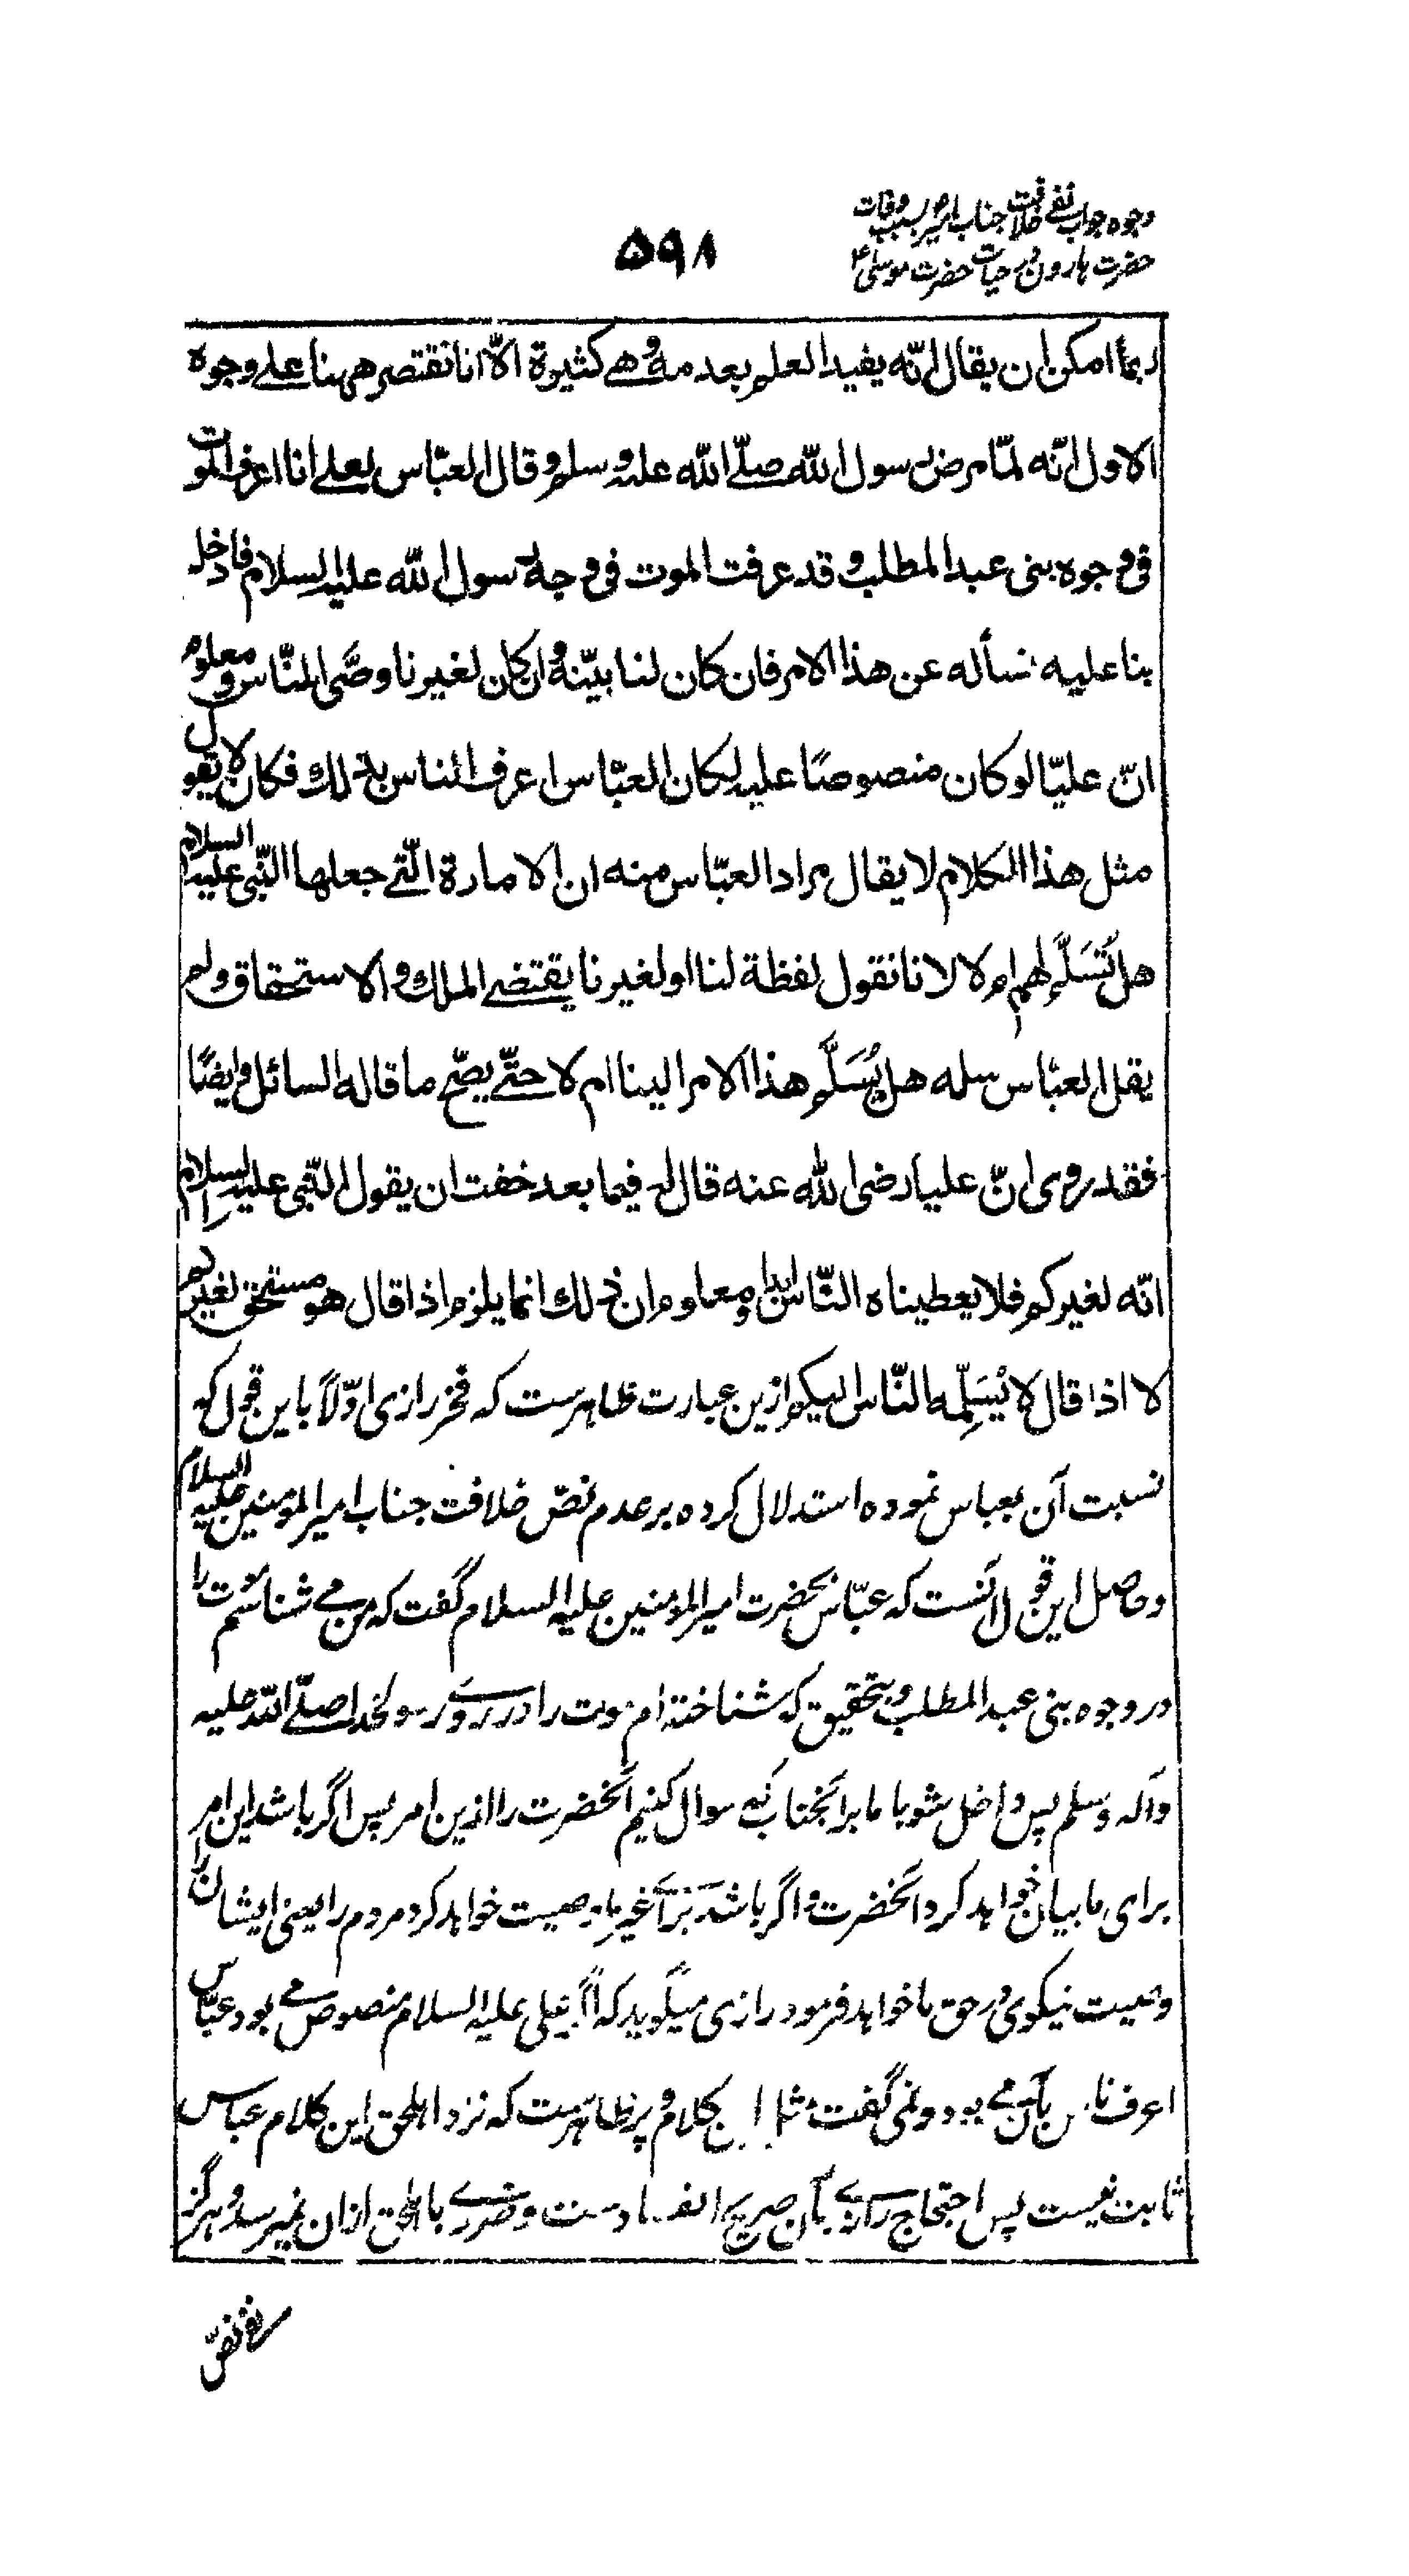 وجوه جواب نفی خلافت جناب امیر بسبب وفات
۵۹۸
حضرت هارون در حیات حضرت موسی ع
ربما امکن ان یقال انّه یفید العلم بعد مه وهی کثیرة الّا انا نقتصر ههنا علی وجوه
الاول انّه لمّا مرض رسول الله صلّی الله علیه وسلم قال العبّاس لعلی انا اعرف الموت
فی وجوه بنی عبد المطلب وقد عرفت الموت فی وجه رسول الله علیه السلام فادخل
بنا علیه نسأله عن هذا الامر فان کان لنا بیّنه وان کان لغیرنا وصّی الناس و معلوم
انّ علیّا لو کان منصوصًا علیه لکان العبّاس اعرف الناس بذلک فکان لا یقول
مثل هذا الکلام لا یقال مراد العبّاس منه ان الامارة الّتی جعلها النّبی علیه السلام
هل تُسَلَّم لهم ام لا لانا نقول لفظة لنا او لغیرنا یقتضی الملک والاستحقاق ولم
یقل العبّاس سله هل یُسَلَّم هذا الامر الینا ام لا حتّی یصحّ ما قاله السائل وایضًا
فقد روی انّ علیا رضی الله عنه قال له فیما بعد خفت ان یقول النّبی علیه السلام
انّه لغیرکم فلا یعطیناه النّاس ابدا ومعلوم ان ذلک انما یلزم اذا قال هو مستحق لغیرکم
لا اذا قال لا یُسَلِّمه النّاس الیکم ازین عبارت ظاهرست که فخر رازی اوّلاً باین قول که
نسبت آن بعباس نموده استدلال کرده بر عدم نصّ خلافت جناب امیر المومنین علیه السلام
وحاصل این قول آنست که عبّاس بحضرت امیر المومنین علیه السلام گفت که من می شناسم موت را
در وجوه بنی عبد المطلب و بتحقیق که شناخته ام موت را در روی رسولخدا صلّی الله علیه
وآله وسلم پس داخل شو با ما بر آنجناب که سوال کنیم آنحضرت را ازین امر پس اگر باشد این امر
برای ما بیان خواهد کرد آنحضرت و اگر باشد برای غیر ما وصیت خواهد کرد مردم را یعنی ایشان را
وصیت نیکوی در حق ما خواهد فرمود رازی میگوید که اگر علی علیه السلام منصوص می بود عبّاس
اعرف ناس بآن می بود ونمی گفت مثل این کلام و پر ظاهرست که نزد اهلحق این کلام عباس
ثابت نیست پس احتجاج رازی بآن صریح وضرری باهل حق ازان نمیرسد و هرگز